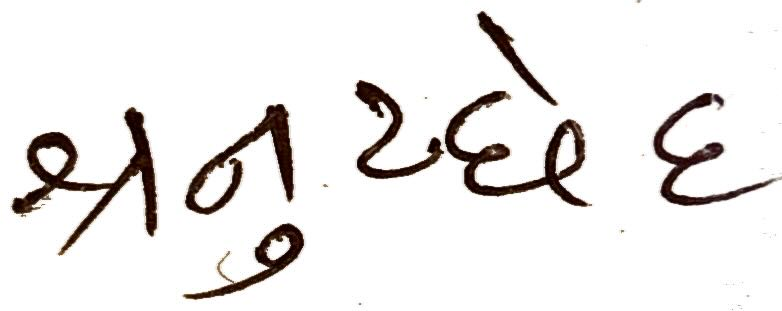 અનુચ્છેદ